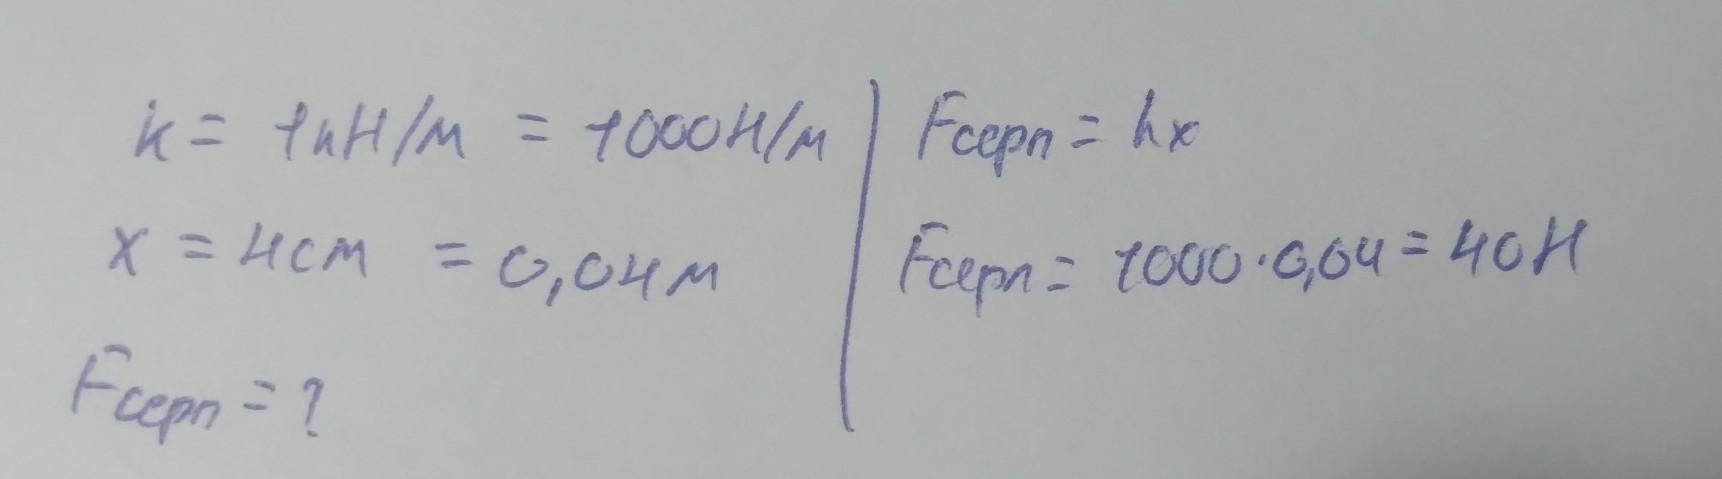 k = 1кН/м = 1000Н/м
x = 4см = 0,04м
Fсерп = ?
Fсерп = kx
Fсерп = 1000·0,04 = 40Н